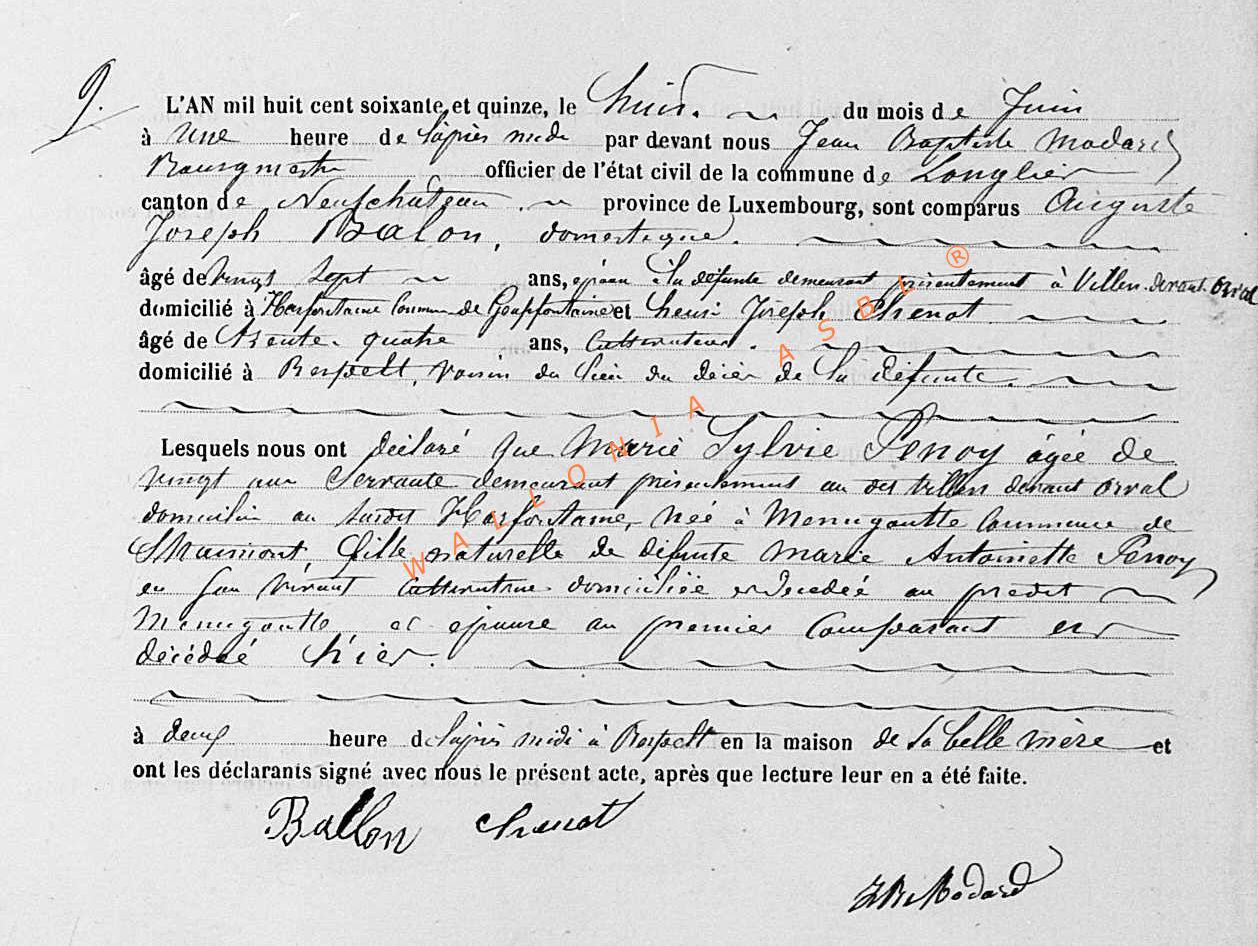 9.
L'AN mil huit cent soixante et quinze, le huit. du mois de Juin
à une heure de l'après midi par devant nous Jean Baptiste Modard
Bourgmestre officier de l'état civil de la commune de Longlier
canton de Neufchâteau province de Luxembourg, sont comparus Auguste
Joseph Balon, domestique.
âgé de vingt sept ans, époux à la défunte demeurant présentement à Villers devant Orval
domicilié à Harfontaine Commune de et henri Joseph Chenot
âgé de trente quatre ans, Cultivateur.
domicilié à Respelt, voisin du lieu du décès de la défunte.
Lesquels nous ont déclaré que Marie Sylvie Penoy âgée de
vingt ans Servante demeurant présentement au dit Villers devant Orval
domiciliée au susdit Harfontaine, née à Menugoutte Commune de
Straimont, fille naturelle de défunte Marie Antoinette Penoy
en son vivant Cultivatrice domiciliée et décédée au predit
Menugoutte et épouse au premier Comparant est
décédée hier.
à deux heure de l'après midi à Respelt en la maison de sa belle mère et
ont les déclarants signé avec nous le présent acte, après que lecture leur en a été faite.
Ballon Chenot
JBte Modard
WALLONIA ASBL ®